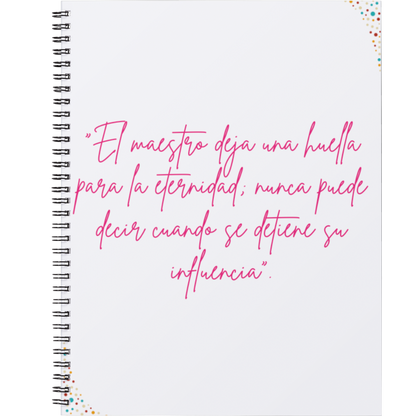 "El maestro deja una huella
para la eternidad; nunca puede
decir cuando se detiene su
influencia".